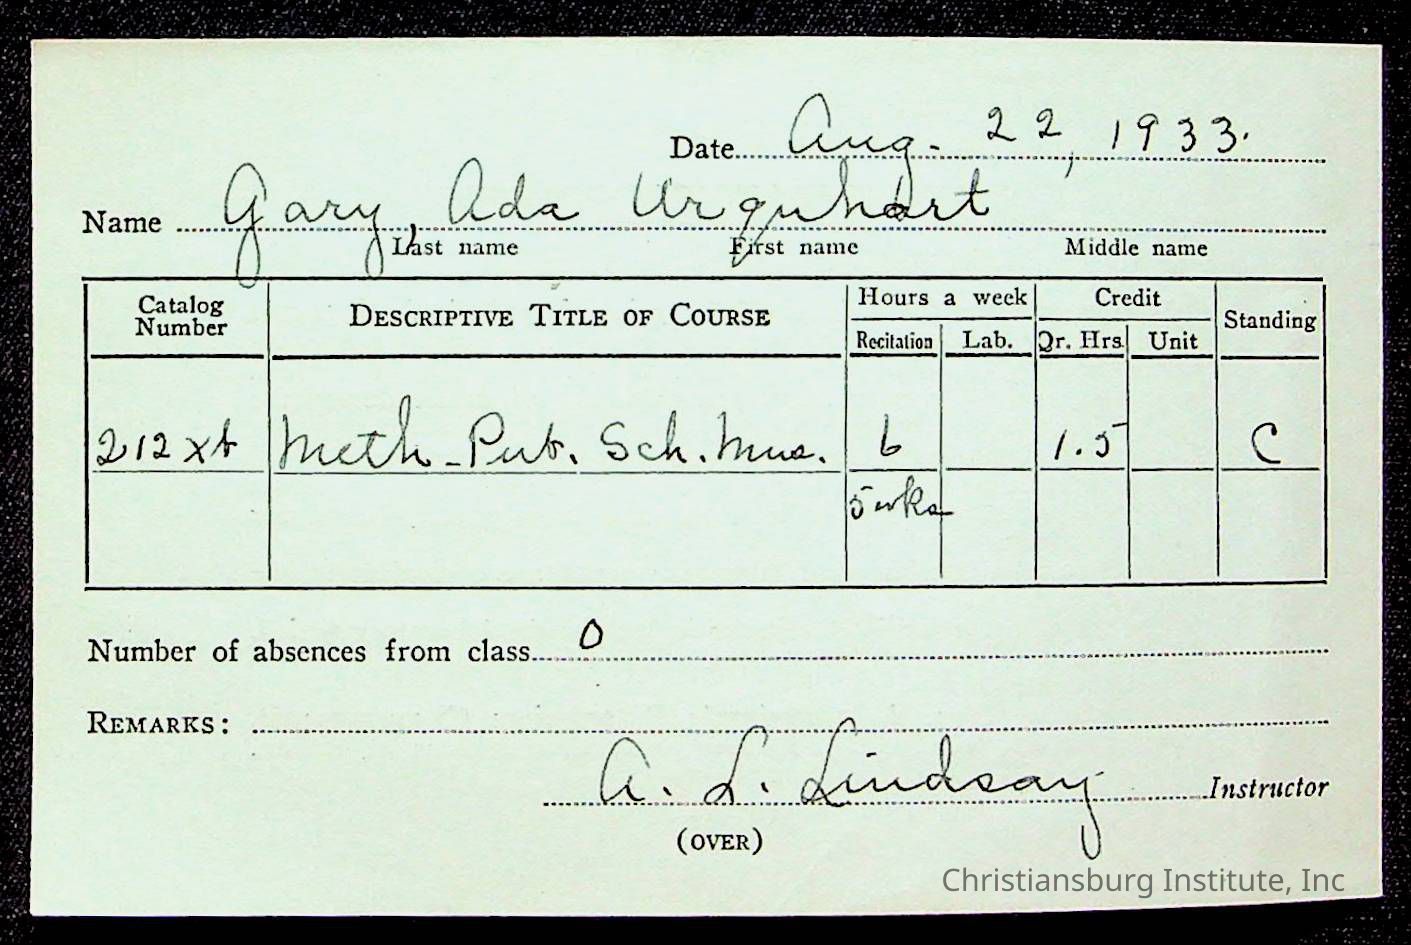 Date Aug. 22, 1933.
Name Gary, Ada Urquhart
Last name First name Middle name
Catalog Number DESCRIPTIVE TITLE OF COURSE Hours a week Credit Standing
Recitation Lab. Qr. Hrs. Unit
212xb Meth. Pub. Sch. Mus. 6 1.5 C
5 wks
Number of absences from class 0
REMARKS:
A. L. Lindsay Instructor
(OVER)
Christiansburg Institute, Inc